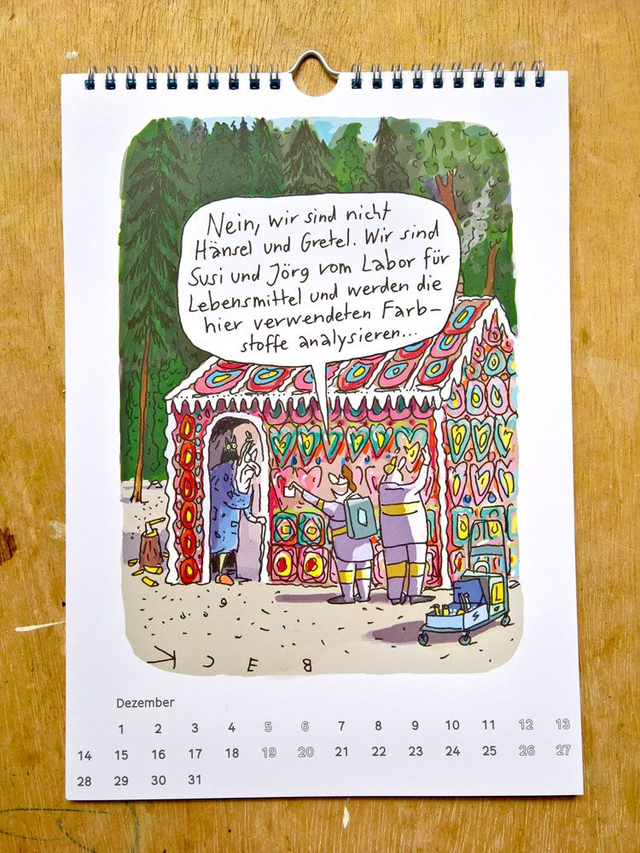 Nein, wir sind nicht
Hänsel und Gretel. Wir sind
Susi und Jörg vom Labor für
Lebensmittel und werden die
hier verwendeten Farb-
stoffe analysieren...
L
S
BECK
Dezember
1 2 3 4 5 6 7 8 9 10 11 12 13
14 15 16 17 18 19 20 21 22 23 24 25 26 27
28 29 30 31